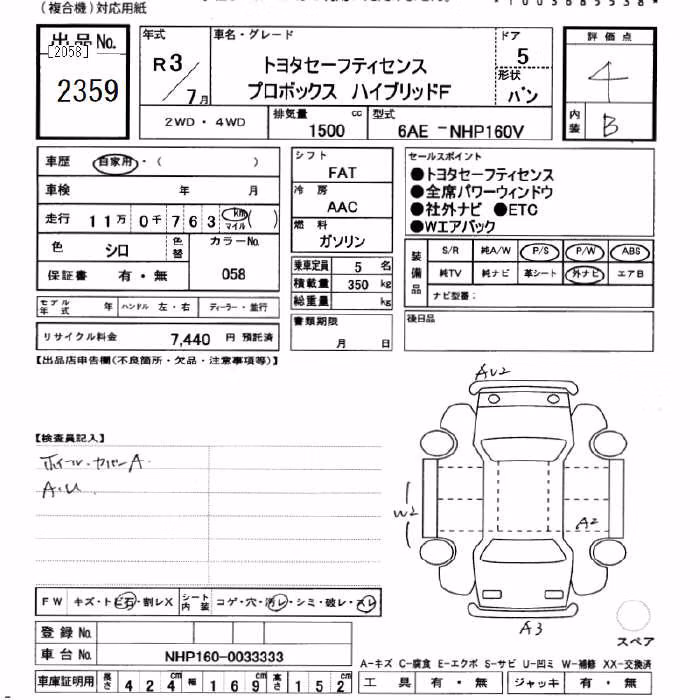 (複合機)対応用紙
出品No.
[2058]
2359
年式
R3/7月
車名・グレード
トヨタセーフティセンス
プロボックス ハイブリッドF
ドア
5
形状
バン
評価点
4
内装
B
2WD・4WD
排気量
1500 cc
型式
6AE-NHP160V
車歴 自家用・( )
車検 年 月
走行 11万0千763 km マイル ( )
色 シロ 色替 カラーNo.
保証書 有・無 058
モデル年式 年 ハンドル 左・右 ディーラー・並行
リサイクル料金 7,440 円 預託済
シフト
FAT
冷房
AAC
燃料
ガソリン
乗車定員 5 名
積載量 350 kg
総重量 kg
書類期限
月 日
セールスポイント
●トヨタセーフティセンス
●全席パワーウィンドウ
●社外ナビ ●ETC
●Wエアバック
装備品
S/R 純A/W P/S P/W ABS
純TV 純ナビ 革シート 外ナビ エアB
ナビ型番:
後日品
【出品店申告欄(不良箇所・欠品・注意事項等)】
【検査員記入】
ホイールカバーA
A.U
AU2
W2
A2
A3
スペア
FW キズ・トビ石・割レX シート内装 コゲ・穴・汚レ・シミ・破レ・スレ
登録No.
車台No. NHP160-0033333
車庫証明用 長さ 424cm 幅 169cm 高さ 152cm
A-キズ C-腐食 E-エクボ S-サビ U-凹ミ W-補修 XX-交換済
工具 有・無 ジャッキ 有・無